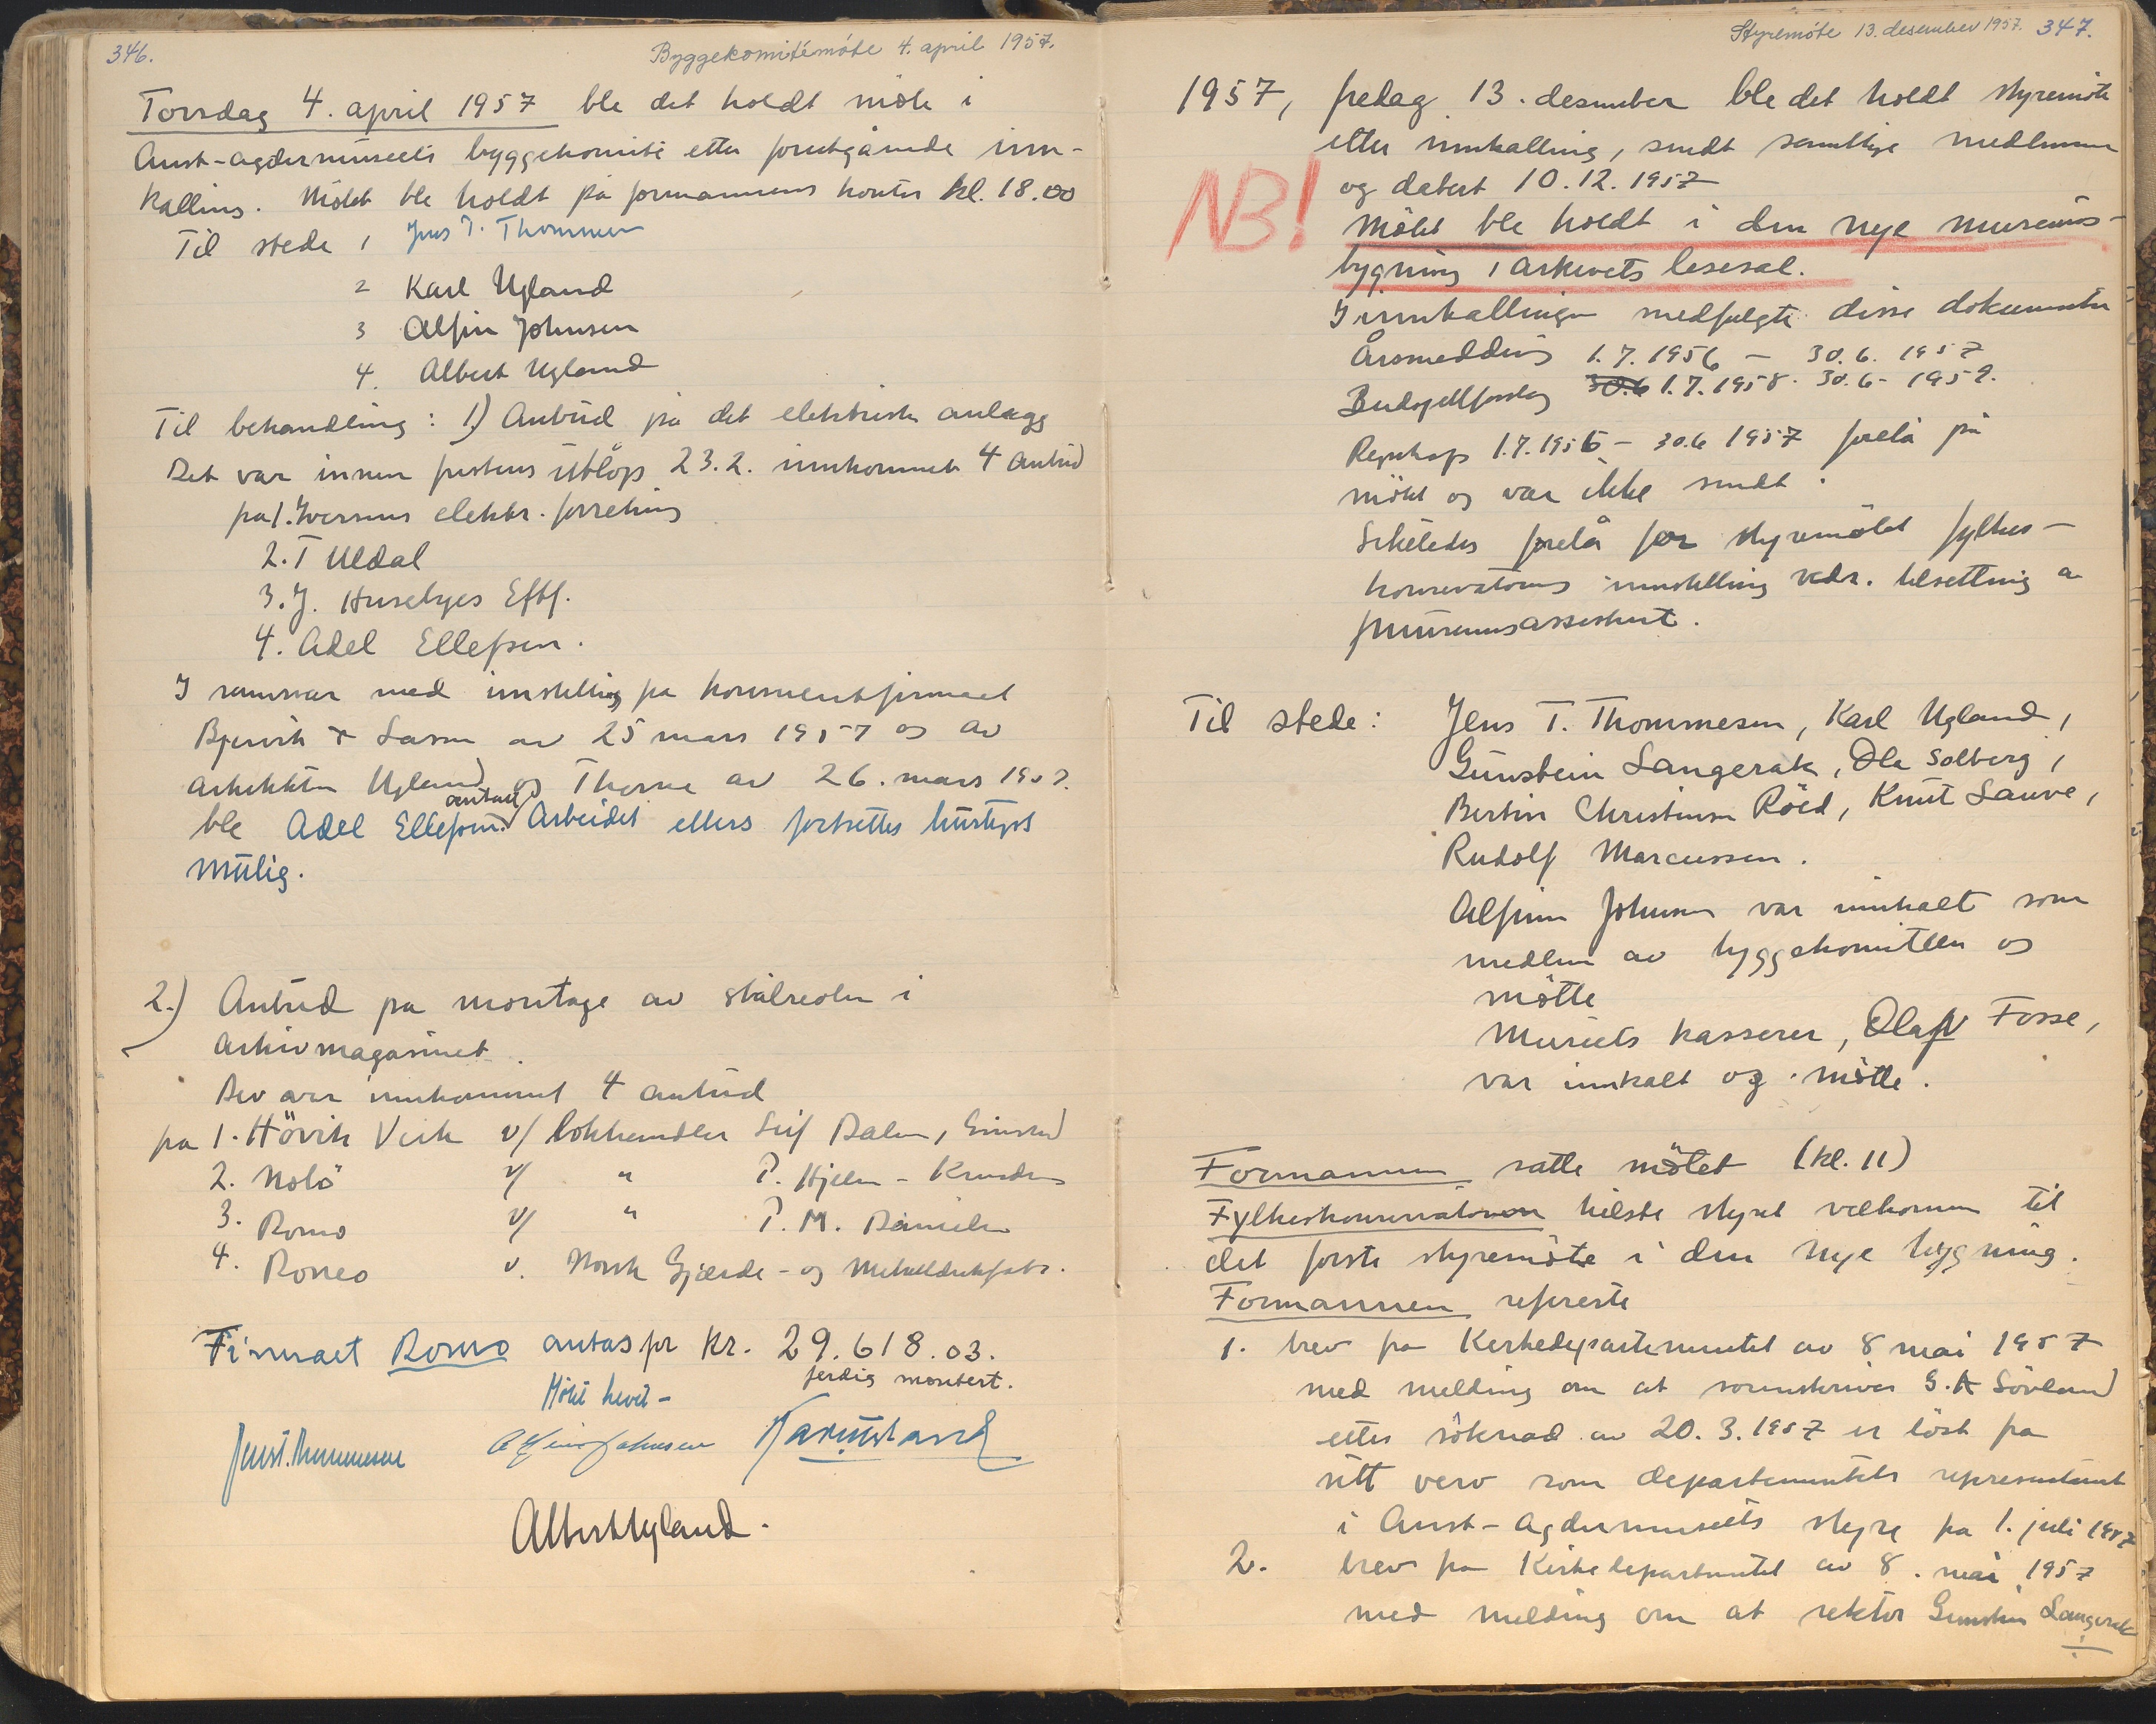 346.
Byggekomitémöte 4. april 1957.
Torsdag 4. april 1957 ble det holdt möte i
Aust-Agdermuseets byggekomite etter forutgående inn-
kalling. Mötet ble holdt på formannens kontor kl. 18.00
Til stede 1 Jens T. Thommesen
2 Karl Ugland
3 Alfin Johnsen
4. Albert Ugland
Til behandling: 1.) Anbud på det elektriske anlegg
Det var innen fristens utlöp 23.2. innkommet 4 anbud
fra 1. Iversens elektr. forretning
2. T Uldal
3. J. Husebyes Eftf.
4. Adel Ellefsen.
I samsvar med innstilling fra konsulentfirmaet
Bjervik & Lassen av 25 mars 1957 og av
arkitekten Ugland og Thorne av 26. mars 1957.
ble Adel Ellefsen antatt. Arbeidet ellers fortsettes hurtigst
mulig.
2.) Anbud på montage av stålreoler i
arkivmagasinet.
Det var innkommet 4 anbud
fra 1. Hövik Verk v/ bokhandler Leif Dalen, Grimstad
2. Nolö v/ " P. Hjelm-
3. Romo v/ " P. M. Danielsen
4. Roneo v. Norsk Gjærde- og Metalldukfabr.
Firmaet Romo antas for kr. 29.618.03.
ferdig montert.
Mötet hevet -
Jens T. Thommesen Alfin Johnsen Karl Ugland
Albert Ugland.
Styremöte 13. desember 1957. 347.
1957, fredag 13. desember ble det holdt styremöte
etter innkalling, sendt samtlige medlemmer
og datert 10.12.1957
NB!
Mötet ble holdt i den nye museums-
bygning i arkivets lesesal.
I innkallingen medfulgte disse dokumenter
Årsmelding 1.7.1956 - 30.6.1957
Budsjettforslag 30.6 1.7.1958. 30.6-1959.
Regnskap 1.7.1956 - 30.6 1957 forelå på
mötet og var ikke sendt.
Likeledes forelå for styremötet fylkes-
konservatorens innstilling vedr. tilsetting a
museumsassistent.
Til stede: Jens T. Thommesen, Karl Ugland,
Gunstein Langerak, Ole Solberg,
Bertin Christensen Röed, Knut Lauve,
Rudolf Marcussen.
Alfinn Johnsen var innkalt som
medlem av byggekomiteen og
mötte
Museets kasserer, Olaf Fosse,
var innkalt og mötte.
Formannen satte mötet (kl. 11)
Fylkeskonservatoren hilste styret velkommen til
det forste styremöte i den nye bygning.
Formannen refererte
1. brev fra Kirkedepartementet av 8 mai 1957
med melding om at sorenskriver S. A Sövland
etter söknad av 20.3.1957 er löst fra
sitt verv som departementets representant
i Aust-Agdermuseets styre fra 1. juli 1957
2. brev fra Kirkedepartmentet av 8. mai 1957
med melding om at rektor Gunstein Langerak